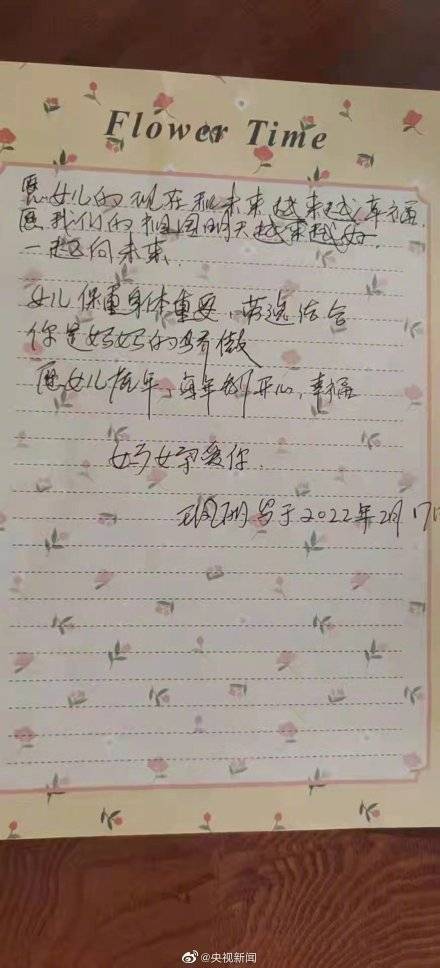 Flower Time
愿女儿的现在和未来越来越幸福.
愿我们的祖国明天越来越好.
一起向未来.
女儿保重身体重要,劳逸结合
你是妈妈的骄傲
愿女儿虎年,每年都开心,幸福
妈妈爱你.
写于2022年2月17
@央视新闻